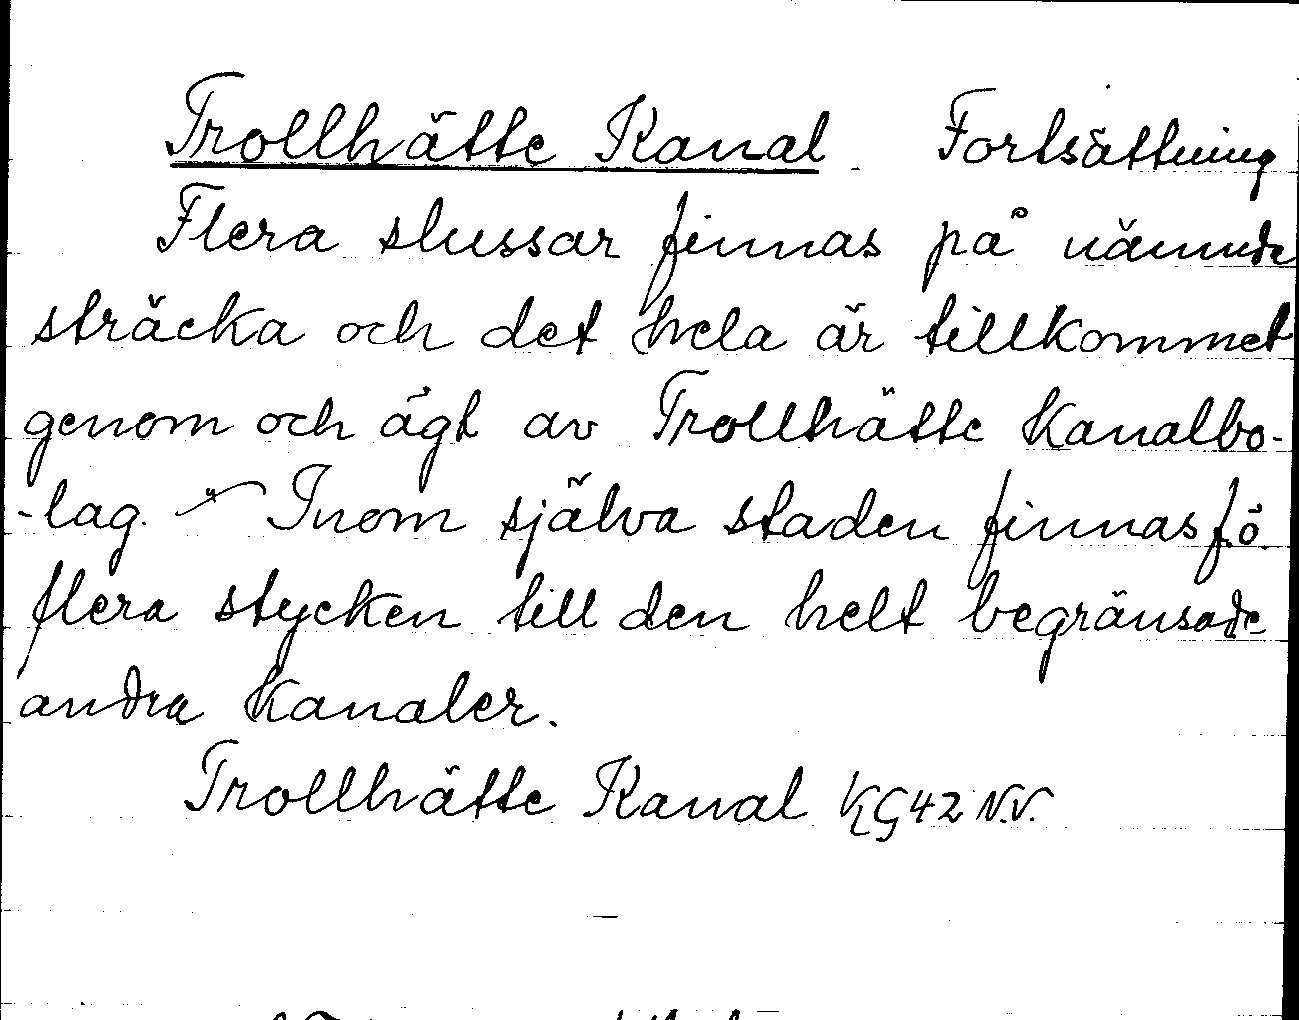 Trollhätte Kanal Fortsättning
Flera slussar finnas på nämnde
sträcka och det hela är tillkommet
genom och ägt av Trollhätte Kanalbo-
-lag. Inom själva staden finnas f.ö.
flera stycken till den helt begränsade
andra kanaler.
Trollhätte Kanal KG 42 N.V.